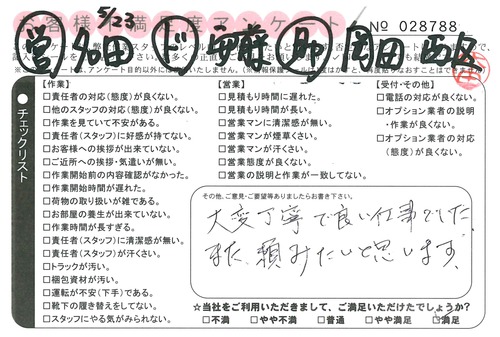 お客様不満足度アンケート
№ 028788
5/23
営 ド 助 岡田 西区
チェックリスト
【作業】
□責任者の対応(態度)が良くない。
□他のスタッフの対応(態度)が良くない。
□作業を見ていて不安がある。
□責任者(スタッフ)に好感が持てない。
□お客様への挨拶が出来ていない。
□ご近所への挨拶・気遣いが無い。
□作業開始前の内容確認がなかった。
□作業開始時間が遅れた。
□荷物の取り扱いが雑である。
□お部屋の養生が出来ていない。
□作業時間が長すぎる。
□責任者(スタッフ)に清潔感が無い。
□責任者(スタッフ)が汗くさい。
□トラックが汚い。
□梱包資材が汚い。
□運転が不安(下手)である。
□靴下の履き替えをしてない。
□スタッフにやる気がみられない。
【営業】
□見積もり時間に遅れた。
□見積もり時間が長い。
□営業マンに清潔感が無い。
□営業マンが煙草くさい。
□営業マンが汗くさい。
□営業態度が良くない。
□営業の説明と作業が一致してない。
【受付・その他】
□電話の対応が良くない。
□オプション業者の説明
・作業が良くない。
□オプション業者の対応
(態度)が良くない。
その他、ご意見・ご要望等ありましたらお書き下さい。
大変丁寧で良い仕事でした
また、頼みたいと思います。
☆当社をご利用いただきまして、ご満足いただけたでしょうか?
□不満 □やや不満 □普通 □やや満足 □満足